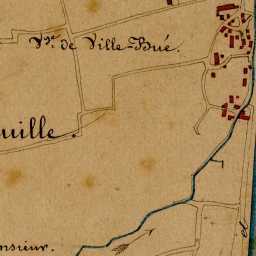 V.ge de Ville-Bué.
uille.
nsieur.
el